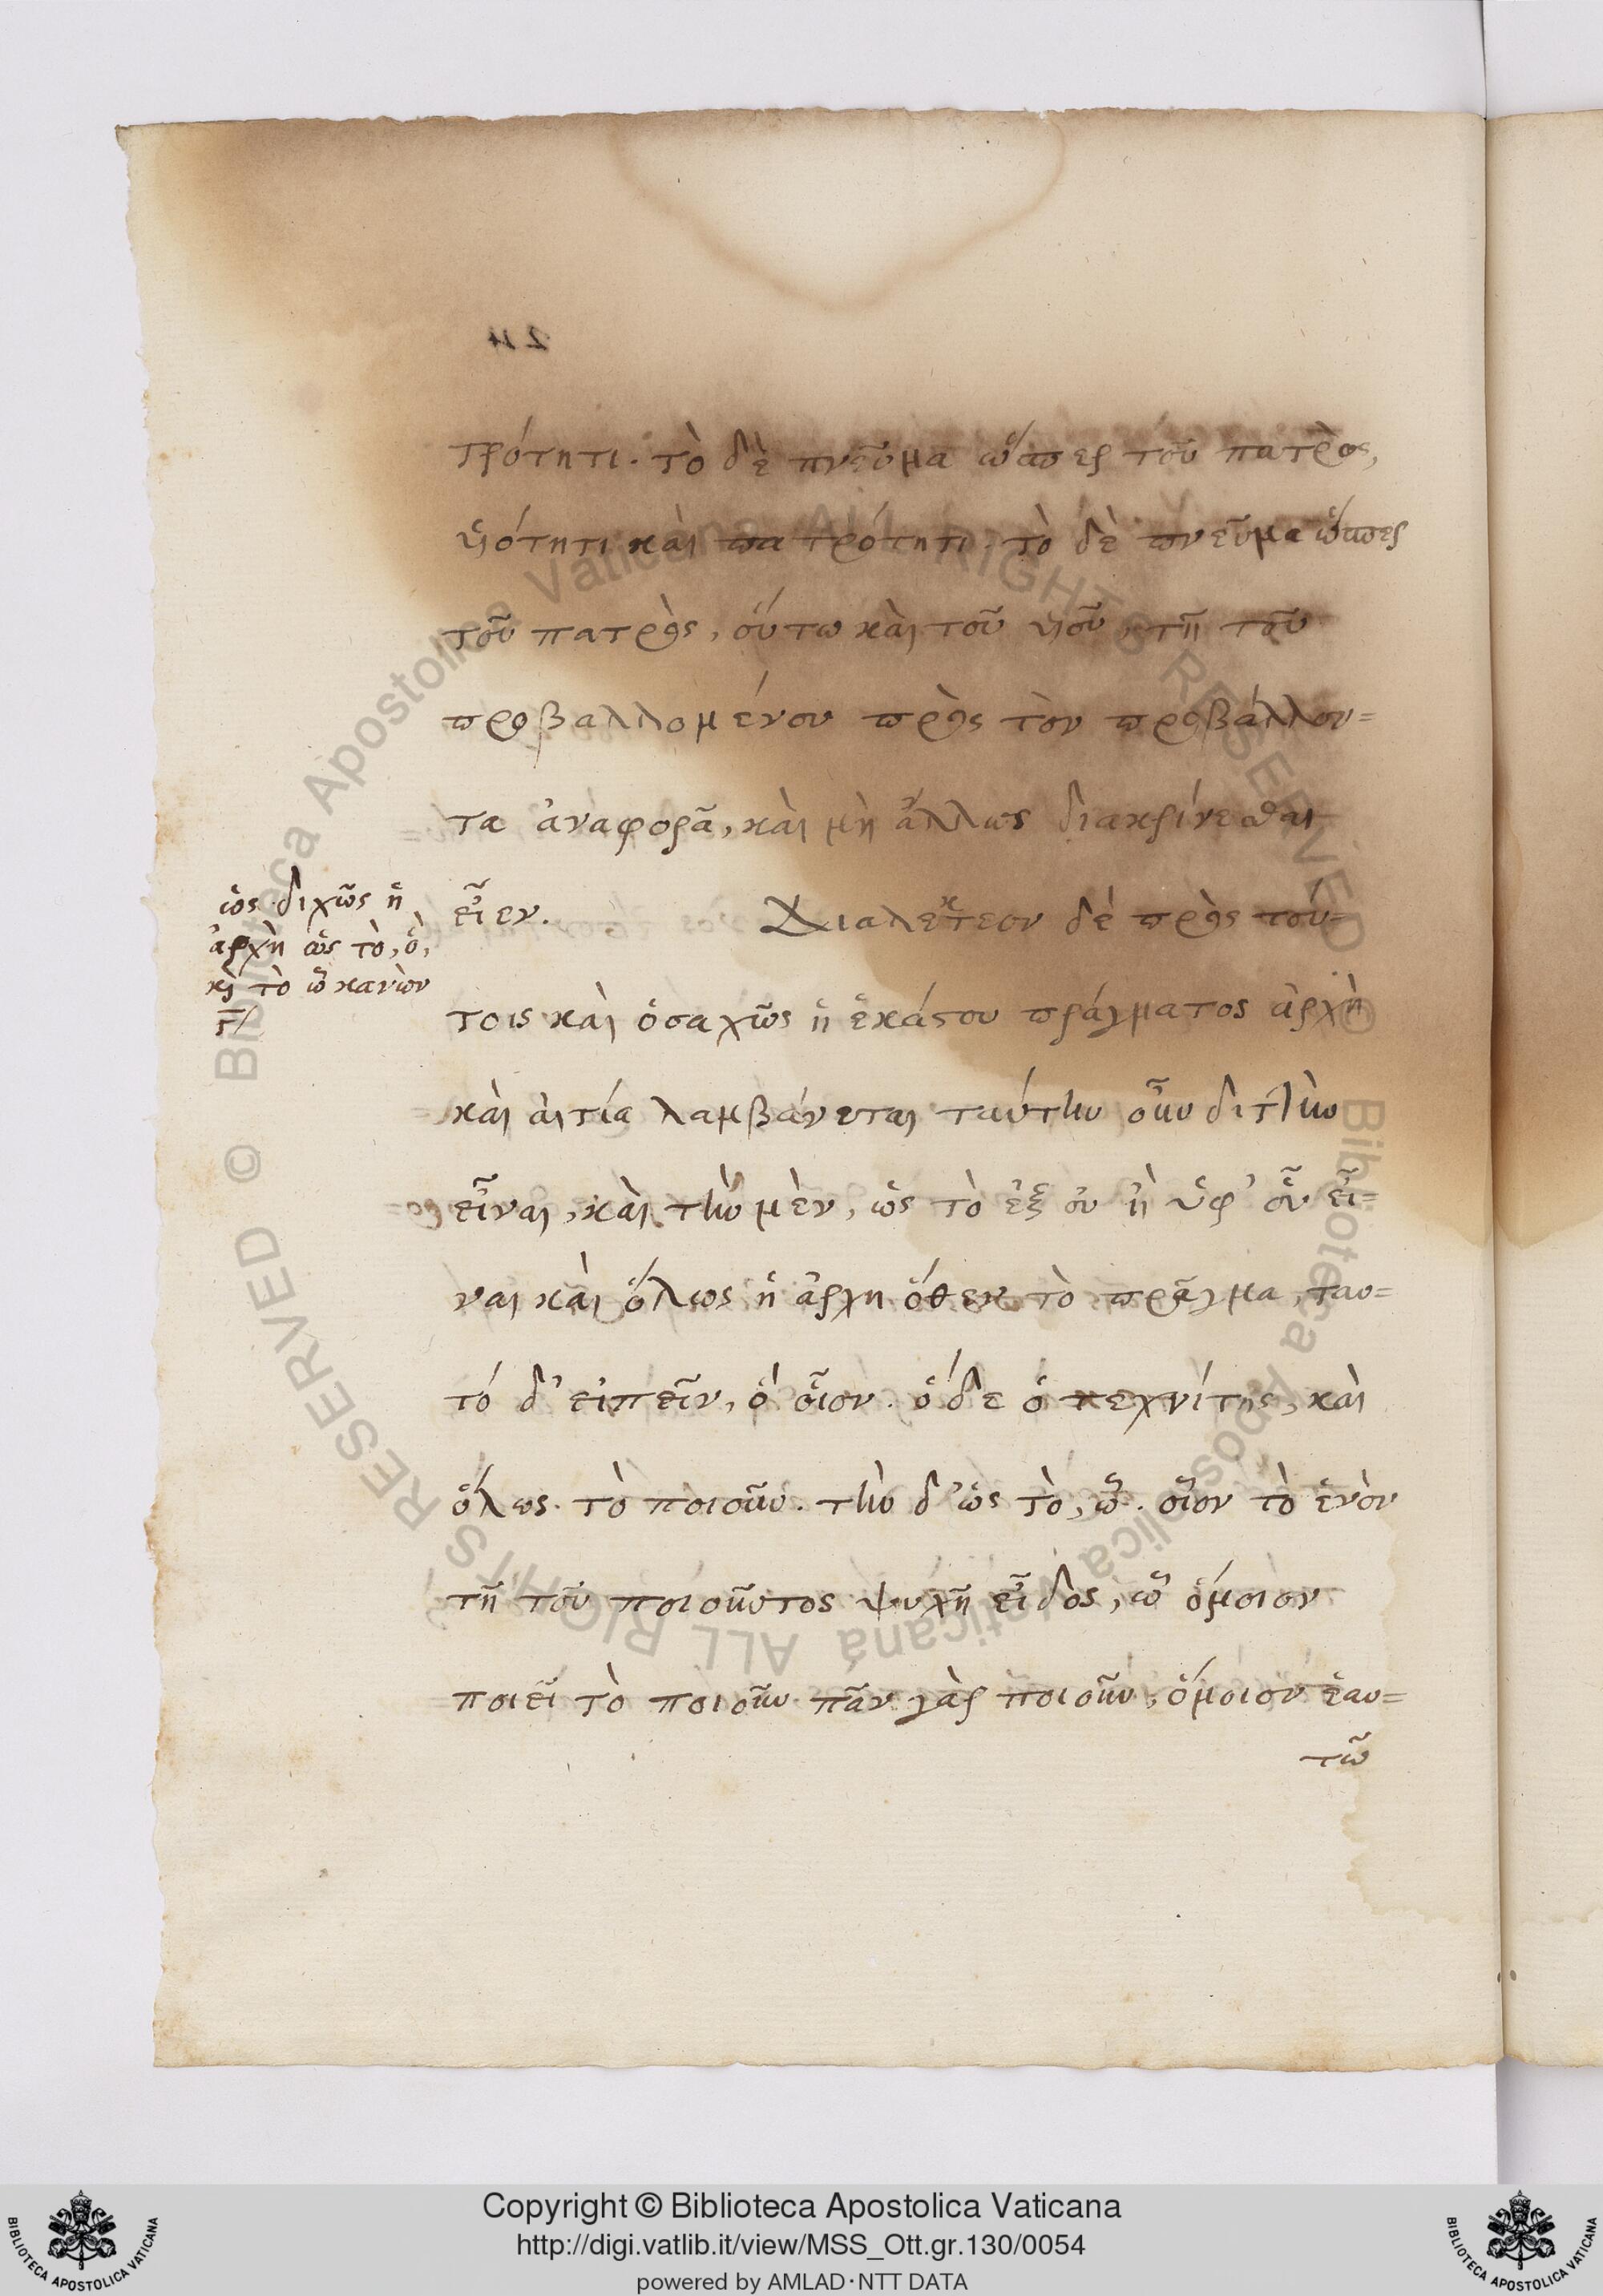 τρότητι. τὸ δὲ πνεῦμα ὥσπερ τοῦ πατρὸς,
υἱότητι καὶ πατρότητι. τὸ δὲ πνεῦμα ὥσπερ
τοῦ πατρὸς, οὕτω καὶ τοῦ υἱοῦ, τῆ τοῦ
προβαλλομένου πρὸς τὸν προβάλλον=
τα ἀναφορᾶ, καὶ μὴ ἄλλως διακρίνεσθαι
εἶεν. Διαλεκτεον δὲ πρὸς τού=
τοις καὶ ὁσαχῶς ἡ ἑκάστου πράγματος ἀρχὴ
καὶ αἰτία λαμβάνεται ταύτην οὖν διττὴν
εἶναι, καὶ τὴν μὲν, ὡς τὸ ἐξ οὐ ἢ ὑφ' οὗ εἶ=
ναι καὶ ὅλως ἡ ἀρχη ὅθεν τὸ πρᾶγμα, ταυ=
τό δ' εἰπεῖν, ὁ οἷον. ὅδε ὁ τεχνίτης, καὶ
ὅλως. τὸ ποιοῦν. τὴν δ' ὡς τὸ, ὧ. οἷον τὸ ἐνὸν
τῆ τοῦ ποιοῦντος ψυχῆ εἶδος, ὧ ὅμοιον
ποιεῖ τὸ ποιοῦν. πᾶν γὰρ ποιοῦν, ὅμοιον ἑαυ=
τῶ
διχῶς ἡ
ἀρχὴ ὡς τὸ, ὁ,
καὶ τὸ ὧ κανὼν
Copyright © Biblioteca Apostolica Vaticana
http://digi.vatlib.it/view/MSS_Ott.gr.130/0054
powered by AMLAD·NTT DATA
BIBLIOTECA APOSTOLICA VATICANA
BIBLIOTECA APOSTOLICA VATICANA
© Biblioteca Apostolica Vaticana ALL RIGHTS RESERVED © Biblioteca Apostolica Vaticana ALL RIGHTS RESERVED